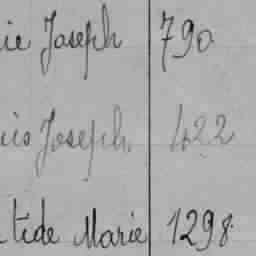 ie Joseph 790
is Joseph. 422
tide Marie 1298